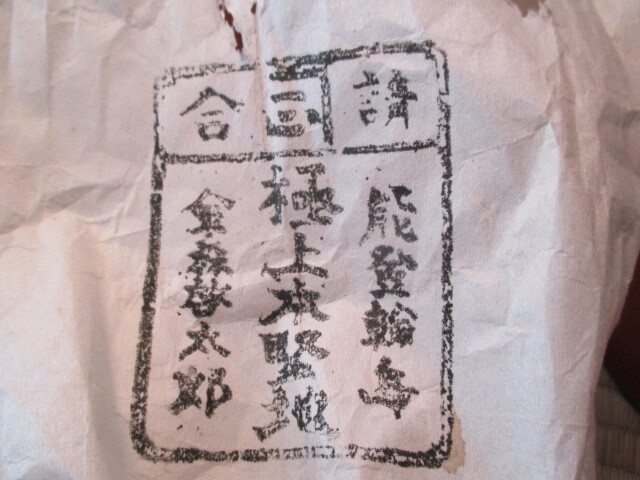 請合
能登輪島
極上本堅地
金森太郎